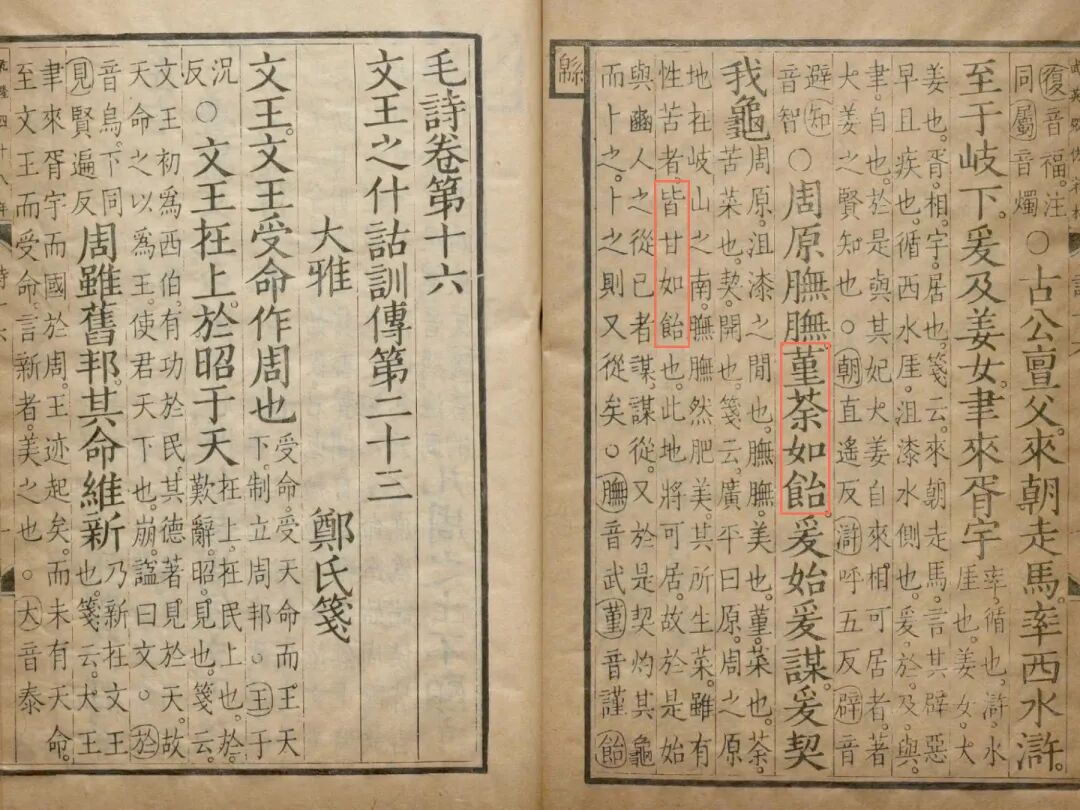 復音福。注
同屬音燭
○古公亶父。來朝走馬。率西水滸。
至于岐下。爰及姜女。聿來胥宇
率循也。滸水
厓也。姜女。大
姜也。胥相。宇居也。箋云。來朝走馬。言其辟惡
早且疾也。循西水厓。沮漆水側也。爰於。及與。
聿自也。於是與其妃大姜自來相可居者。著
大姜之賢知也。○朝直遙反滸呼五反辟音
避知
音智
○周原膴膴。堇荼如飴。爰始爰謀。爰契
我龜
周原。沮漆之間也。膴膴。美也。堇。菜也。荼。
苦菜也。契。開也。箋云。廣平曰原。周之原
地在岐山之南。膴膴然肥美。其所生菜雖有
性苦者。皆甘如飴也。此地將可居。故於是始
與豳人之從已者謀。謀從。又於是契灼其龜
而卜之。卜之則又從矣。○膴音武堇音謹飴
緜
毛詩卷第十六
文王之什詁訓傳第二十三
大雅 鄭氏箋
文王。文王受命作周也
受命。受天命而王天
下。制立周邦。○王于
況
反
○文王在上。於昭于天
在上。在民上也。於
歎辭。昭。見也。箋云。
文王初為西伯。有功於民。其德著見於天。故
天命之以為王。使君天下也。崩謚曰文。○於
音烏。下同
見賢遍反
周雖舊邦。其命維新
乃新在文王
也。箋云。大王
聿來胥宇而國於周。王迹起矣。而未有天命。
至文王而受命。言新者。美之也。○大音泰